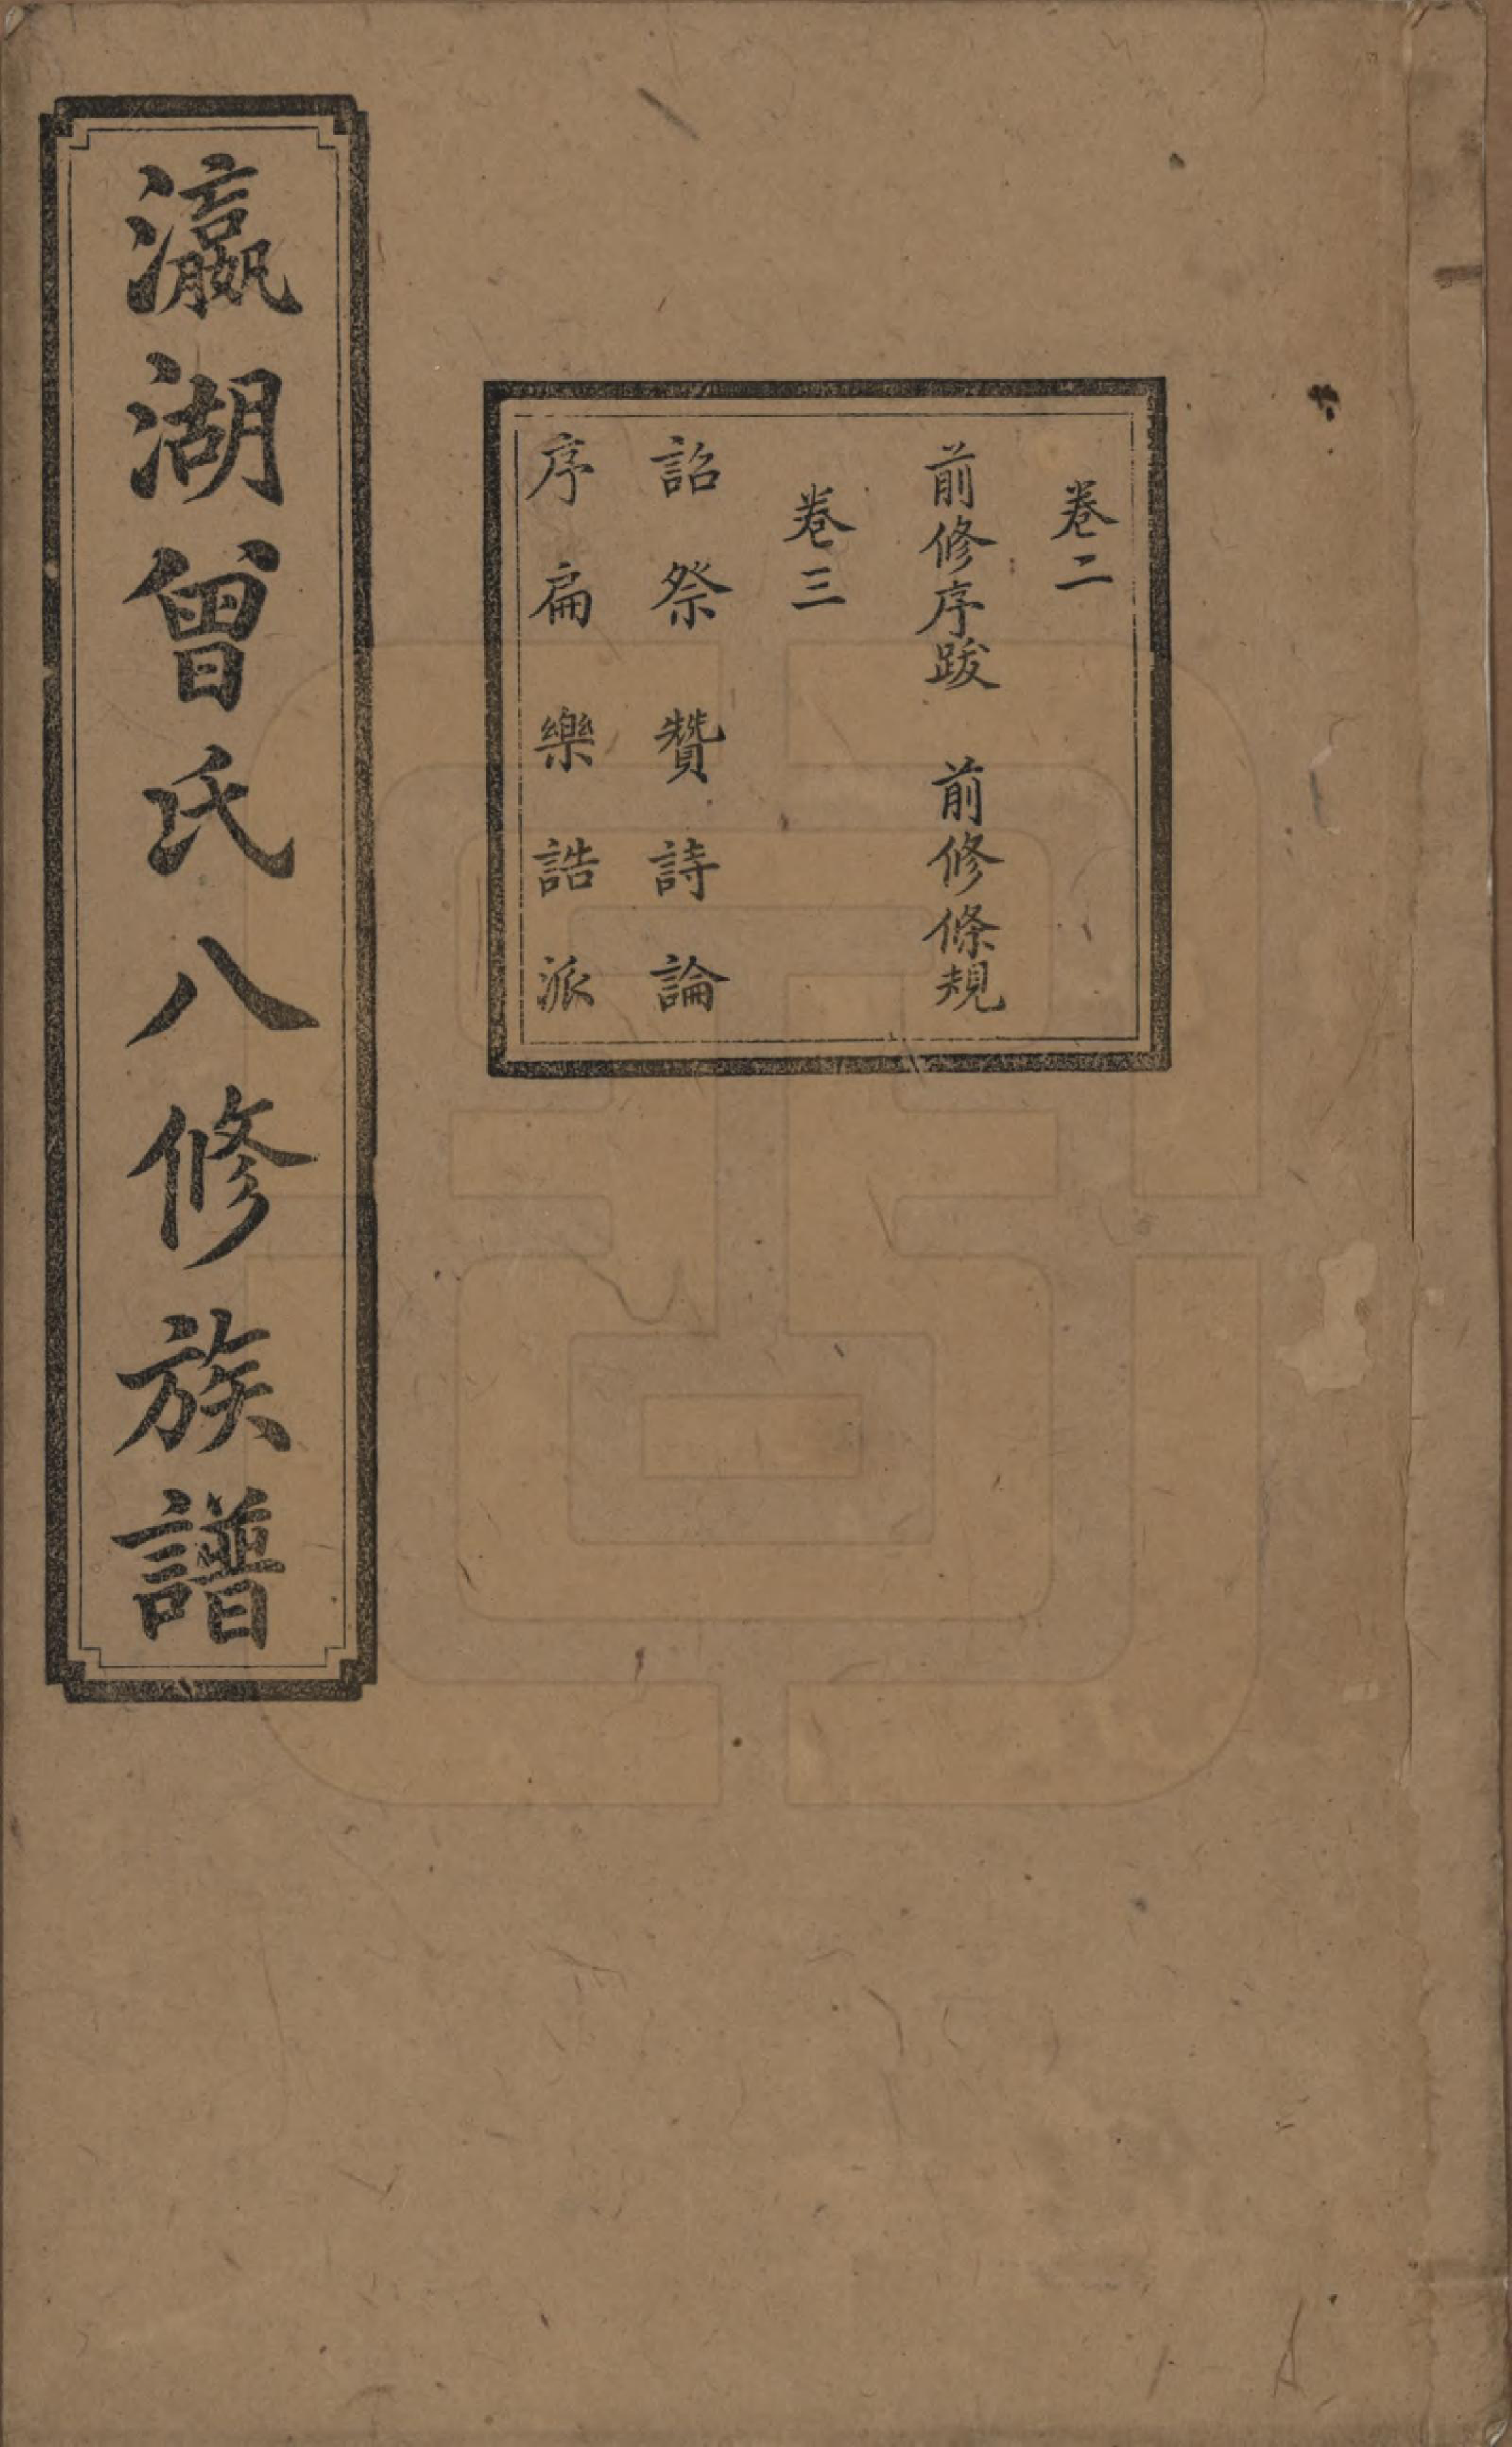 卷二
前修序跋　前修條規
卷三
詔祭贊詩論
序扁樂誥派
瀛湖曾氏八修族譜